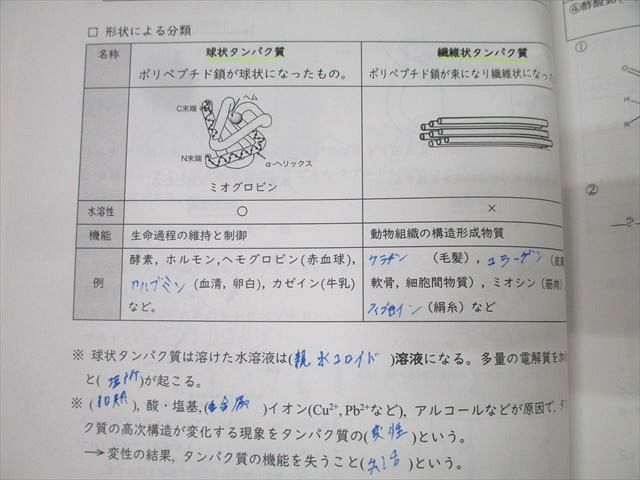 ④酢酸鉛
□ 形状による分類
①
名称 球状タンパク質 繊維状タンパク質
ポリペプチド鎖が球状になったもの。 ポリペプチド鎖が束になり繊維状になっ
C末端 ヘム
N末端 α-ヘリックス
ミオグロビン
②
水溶性 ○ ×
機能 生命過程の維持と制御 動物組織の構造形成物質
例 酵素, ホルモン, ヘモグロビン(赤血球), ケラチン (毛髪), コラーゲン (皮
アルブミン (血清, 卵白), カゼイン(牛乳) 軟骨, 細胞間物質), ミオシン (筋肉)
など。 フィブロイン (絹糸) など
※ 球状タンパク質は溶けた水溶液は(親水コロイド)溶液になる。多量の電解質を加
と(塩析)が起こる。
※ (加熱), 酸・塩基,(重金属)イオン(Cu²⁺, Pb²⁺など), アルコールなどが原因で, タン
ク質の高次構造が変化する現象をタンパク質の(変性)という。
→変性の結果, タンパク質の機能を失うこと(失活)という。